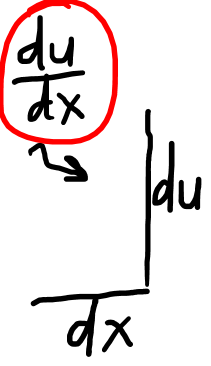 du
dx
du
dx